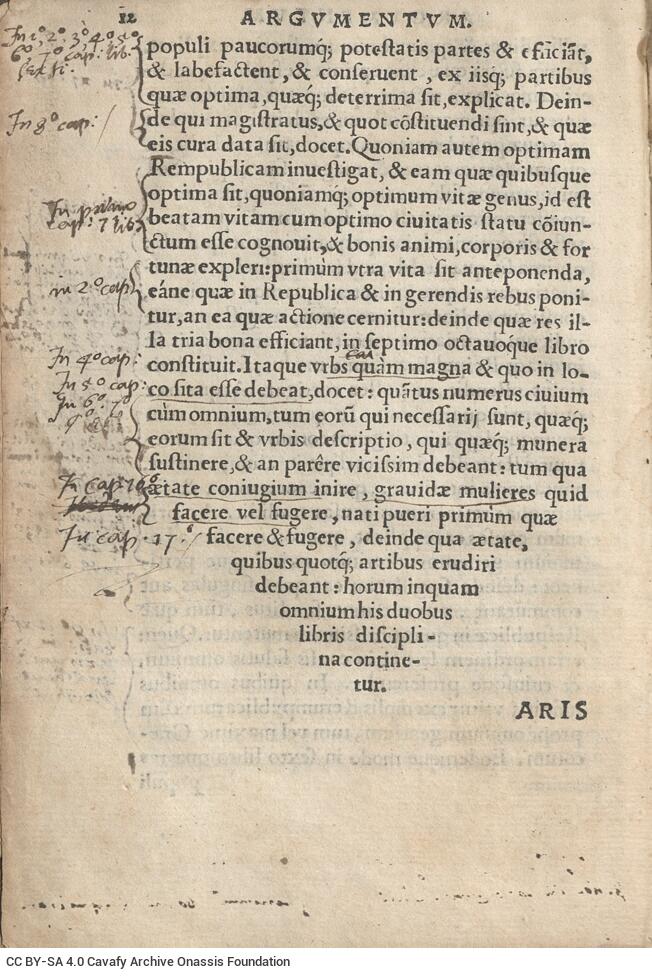 12 ARGVMENTVM.
populi paucorumq́; potestatis partes & efficiãt,
& labefactent, & conseruent, ex iisq; partibus
quæ optima, quæq́; deterrima sit, explicat. Dein-
de qui magistratus, & quot cõstituendi sint, & quæ
eis cura data sit, docet. Quoniam autem optimam
Rempublicam inuestigat, & eam quæ quibusque
optima sit, quoniamq́; optimum vitæ genus, id est
beatam vitam cum optimo ciuitatis statu cõiun-
ctum esse cognouit, & bonis animi, corporis & for
tunæ expleri: primùm vtra vita sit anteponenda,
eáne quæ in Republica & in gerendis rebus poni-
tur, an ea quæ actione cernitur: deinde quæ res il-
la tria bona efficiant, in septimo octauoque libro
constituit. Itaque vrbs quàm magna & quo in lo-
co sita esse debeat, docet: quãtus numerus ciuium
cùm omnium, tum eorũ qui necessarij sunt, quæq́;
eorum sit & vrbis descriptio, qui quæq́; munera
sustinere, & an parêre vicissim debeant: tum qua
ætate coniugium inire, grauidæ mulieres quid
facere vel fugere, nati pueri primùm quæ
facere & fugere, deinde qua ætate,
quibus quotq́; artibus erudiri
debeant: horum inquam
omnium his duobus
libris discipli-
na contine-
tur.
ARIS
In 1º, 2º, 3º, 4º, 5º
6º, 7º cap: lib.
In 8º cap:
In primo
cap: 7 lib.
in 2º cap
In 4º cap:
In 5º cap:
In 6º 7º
In cap: 16º
In cap. 17.º
CC BY-SA 4.0 Cavafy Archive Onassis Foundation